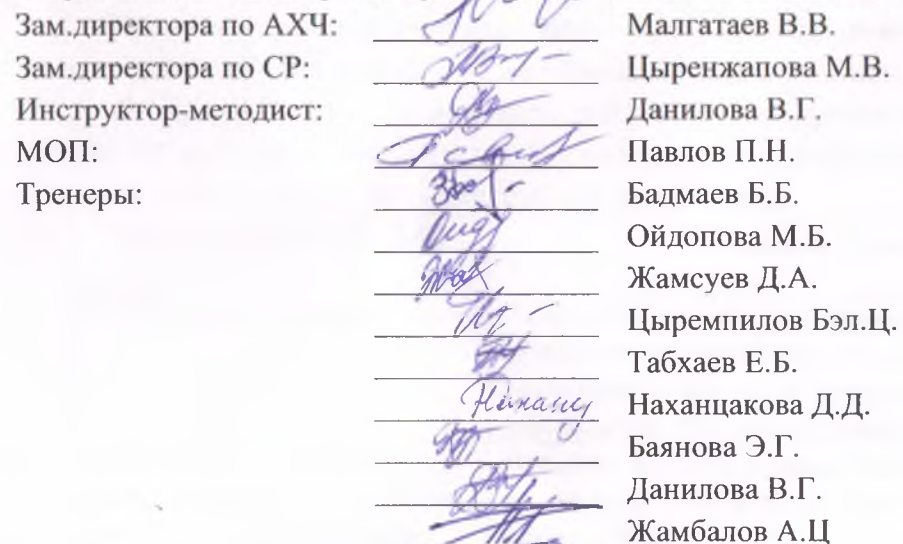 Зам.директора по АХЧ: Малгатаев В.В.
Зам.директора по СР: Цыренжапова М.В.
Инструктор-методист: Данилова В.Г.
МОП: Павлов П.Н.
Тренеры: Бадмаев Б.Б.
Ойдопова М.Б.
Жамсуев Д.А.
Цыремпилов Бэл.Ц.
Табхаев Е.Б.
Наханцакова Д.Д.
Баянова Э.Г.
Данилова В.Г.
Жамбалов А.Ц